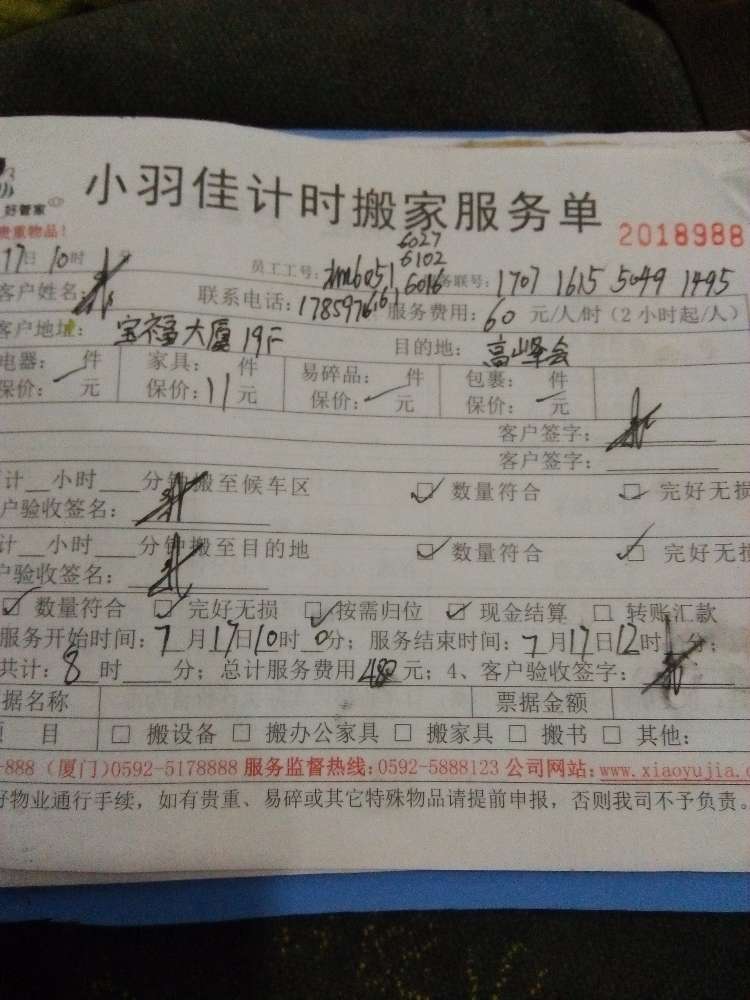 好管家
小羽佳计时搬家服务单
贵重物品！
2018988
6027
6102
17日10时 员工工号：zm6051 6016 务联号：1707 1615 5049 1495
客户姓名： 联系电话：17859761 服务费用：60 元/人/时（2小时起/人）
客户地址：宝福大厦19F 目的地：高峰会
电器： 件 家具： 件 易碎品： 件 包裹： 件
保价： 元 保价： 元 保价： 元 保价： 元
客户签字：
客户签字：
计 小时 分钟搬至候车区 ☑ 数量符合 ☑ 完好无损
户验收签名：
计 小时 分钟搬至目的地 ☑ 数量符合 ☑ 完好无损
户验收签名：
☑ 数量符合 ☑ 完好无损 ☑ 按需归位 ☑ 现金结算 □ 转账汇款
服务开始时间：7月17日10时0分；服务结束时间：7月17日12时 分；
共计：8时 分；总计服务费用480元；4、客户验收签字：
据名称 票据金额
项 目 □ 搬设备 □ 搬办公家具 □ 搬家具 □ 搬书 □ 其他：
-888（厦门）0592-5178888 服务监督热线：0592-5888123 公司网站：www.xiaoyujia.
好物业通行手续，如有贵重、易碎或其它特殊物品请提前申报，否则我司不予负责。